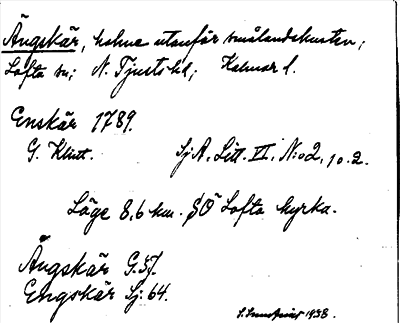 Ängskär, holme utanför smålandskusten;
Lofta sn; N. Tjusts hd; Kalmar l.
Enskär 1789.
G. Klint. Sj A. Litt. VI. No 2, 10.2.
Läge 8,6 km. SÖ Lofta kyrka.
Ängskär G.57.
Engskär Sj. 64.
S. Lundqvist 1938.